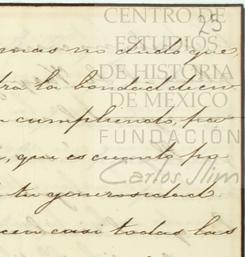 25
CENTRO DE
ESTUDIOS
DE HISTORIA
DE MÉXICO
FUNDACIÓN
Carlos Slim
mas no dudo que
la bondad de su
cumpliendo, pa
, que es cuanto po
tu generosidad
cen casi todas las